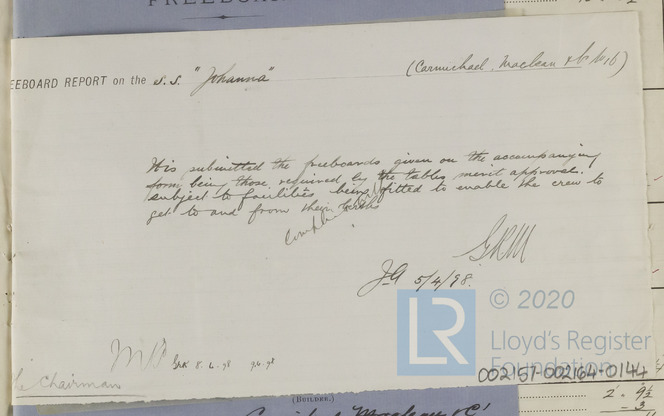 FREEBOARD
EEBOARD REPORT on the S.S. "Johanna" (Carmichael, Maclean & Co
It is submitted the freeboards given on the accompanying
form, being those required by the tables merit approval.
subject to facilities being fitted to enable the crew to
get to and from their berths
GRM
JG 5/4/98.
LR
© 2020
Lloyd's Register
Foundation
002157-002164-0144
Chairman
(BUILDER.)
2. 9½
3